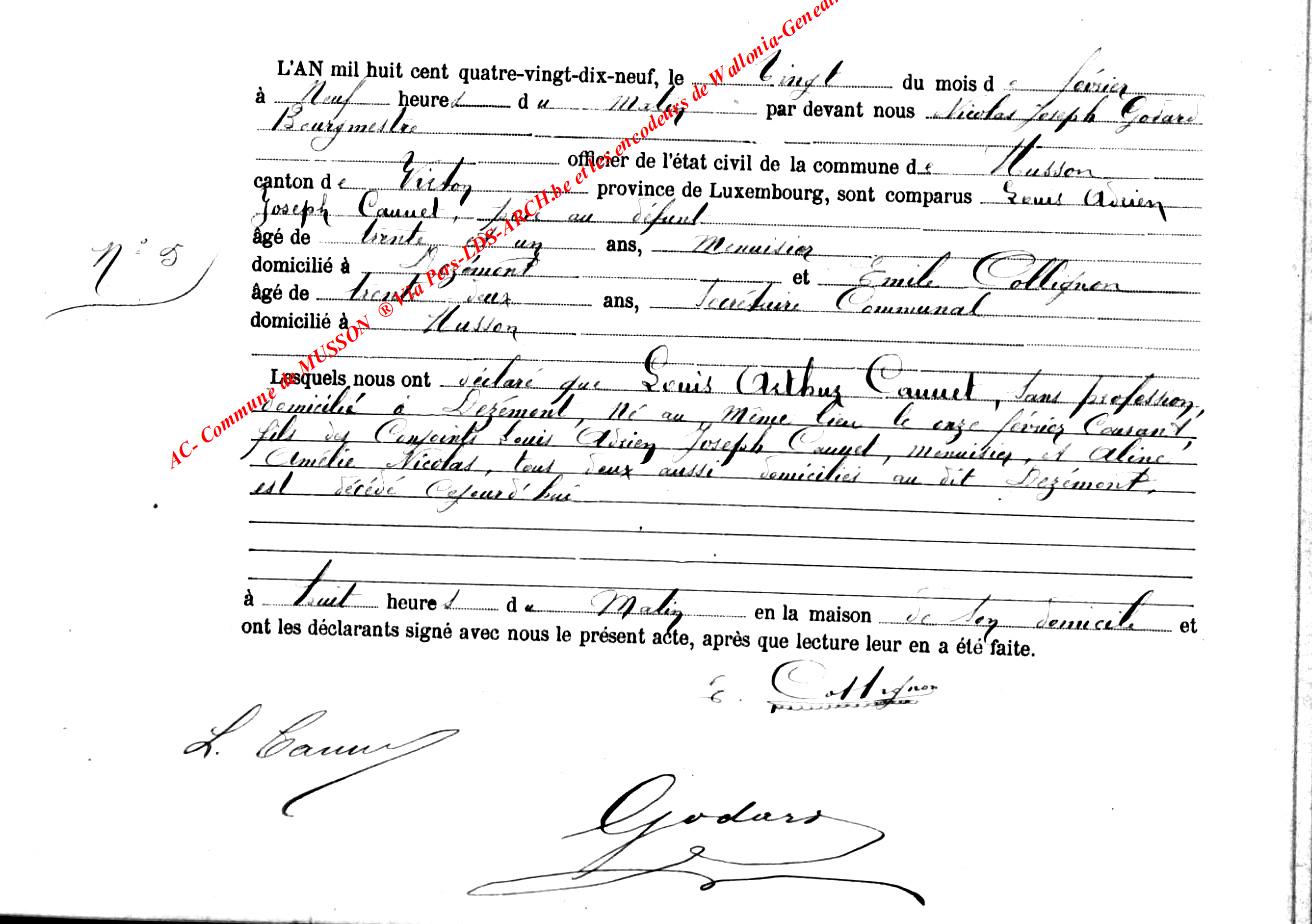 L'AN mil huit cent quatre-vingt-dix-neuf, le Vingt du mois de février
à Neuf heures du Matin par devant nous Nicolas Joseph Godard
Bourgmestre
officier de l'état civil de la commune de Musson
canton de Virton province de Luxembourg, sont comparus Louis Adrien
Joseph Cauuet, père au défunt
âgé de trente et un ans, Menuisier
N° 5
domicilié à et Emile Collignon
âgé de trente deux ans, Secrétaire Communal
domicilié à Musson
Lesquels nous ont déclaré que Louis Arthur Cauuet, Sans profession,
domicilié à Dezémont, Né au même lieu le onze février Courant,
fils des Conjoints Louis Adrien Joseph Cauuet, menuisier, et Aline
Amélie Nicolas, tous deux aussi domiciliés au dit Dezémont,
est décédé Cejourd'hui
à huit heures du Matin en la maison de son domicile et
ont les déclarants signé avec nous le présent acte, après que lecture leur en a été faite.
E. Collignon
L.
Godard
AC- Commune de MUSSON ® Via Pers-LDS-ARCH.be et les encodeurs de Wallonia-Geneal